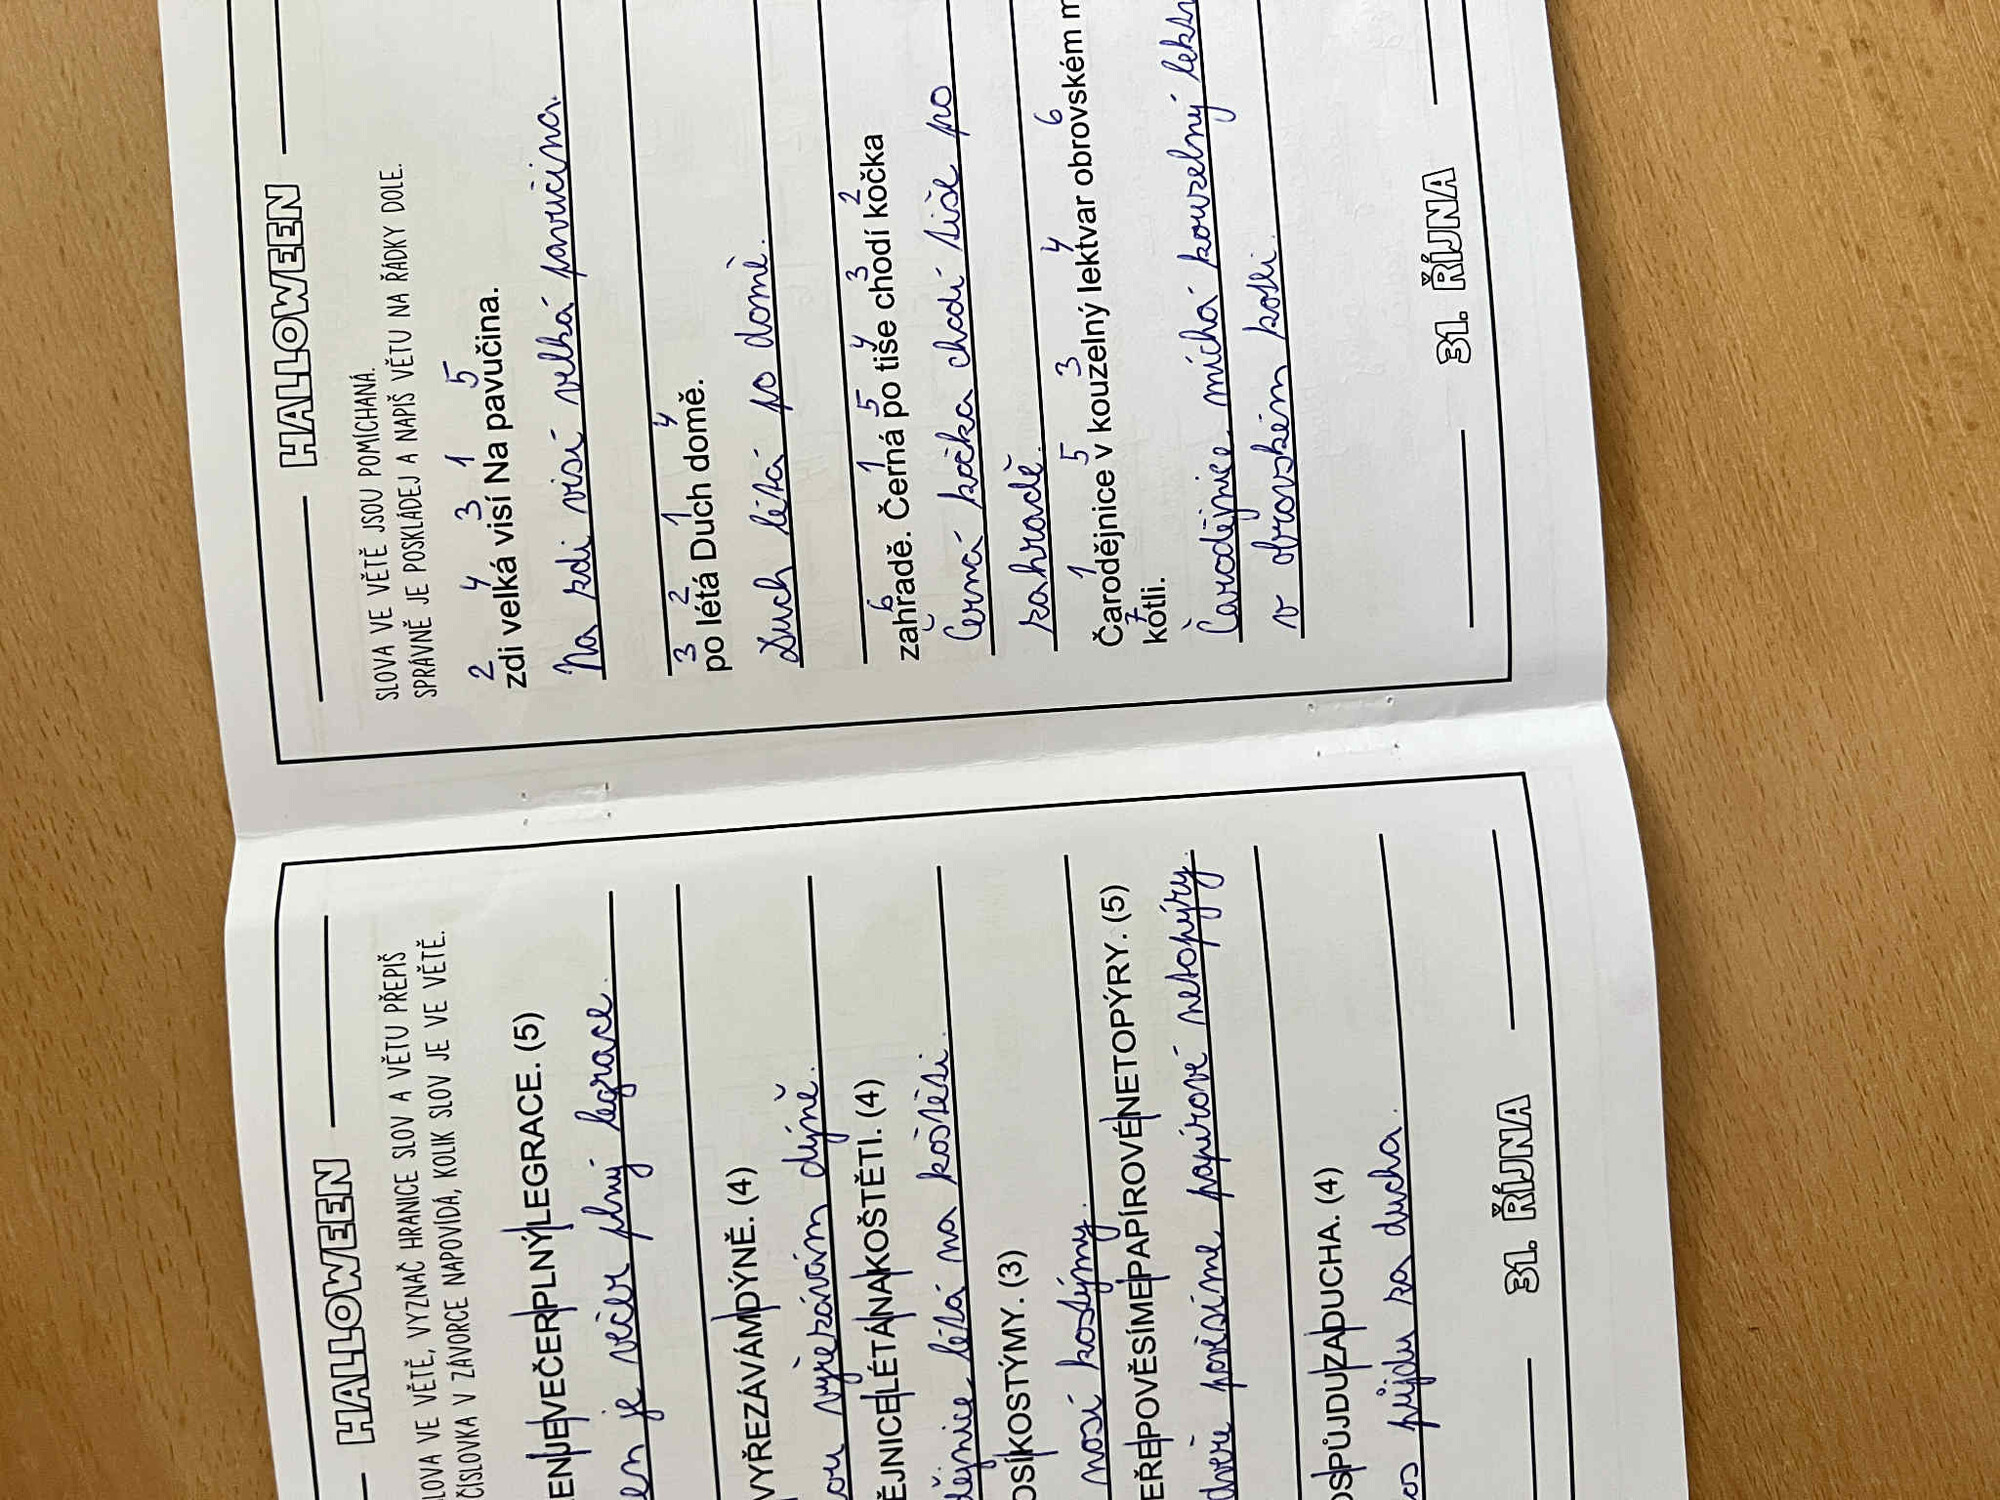 HALLOWEEN
SLOVA VE VĚTĚ, VYZNAČ HRANICE SLOV A VĚTU PŘEPIŠ
ČÍSLOVKA V ZÁVORCE NAPOVÍDÁ, KOLIK SLOV JE VE VĚTĚ.
EN|JE|VEČER|PLNÝ|LEGRACE. (5)
en je večer plný legrace.
VYŘEZÁVÁM|DÝNĚ. (4)
ou vyřezávám dýně.
ĚJNICE|LÉTÁ|NA|KOŠTĚTI. (4)
dějnice létá na koštěti.
OSÍ|KOSTÝMY. (3)
nosí kostýmy.
EŘE|POVĚSÍME|PAPÍROVÉ|NETOPÝRY. (5)
dveře pověsíme papírové netopýry.
OS|PŮJDU|ZA|DUCHA. (4)
os půjdu za ducha.
31. ŘÍJNA
HALLOWEEN
SLOVA VE VĚTĚ JSOU POMÍCHANÁ.
SPRÁVNĚ JE POSKLÁDEJ A NAPIŠ VĚTU NA ŘÁDKY DOLE.
2 4 3 1 5
zdi velká visí Na pavučina.
Na zdi visí velká pavučina.
3 2 1 4
po létá Duch domě.
Duch létá po domě.
6 1 5 4 3 2
zahradě. Černá po tiše chodí kočka
Černá kočka chodí tiše po
zahradě.
1 5 3 4 6
Čarodějnice v kouzelný lektvar obrovském m
7
kotli.
Čarodějnice míchá kouzelný lektv
v obrovském kotli.
31. ŘÍJNA